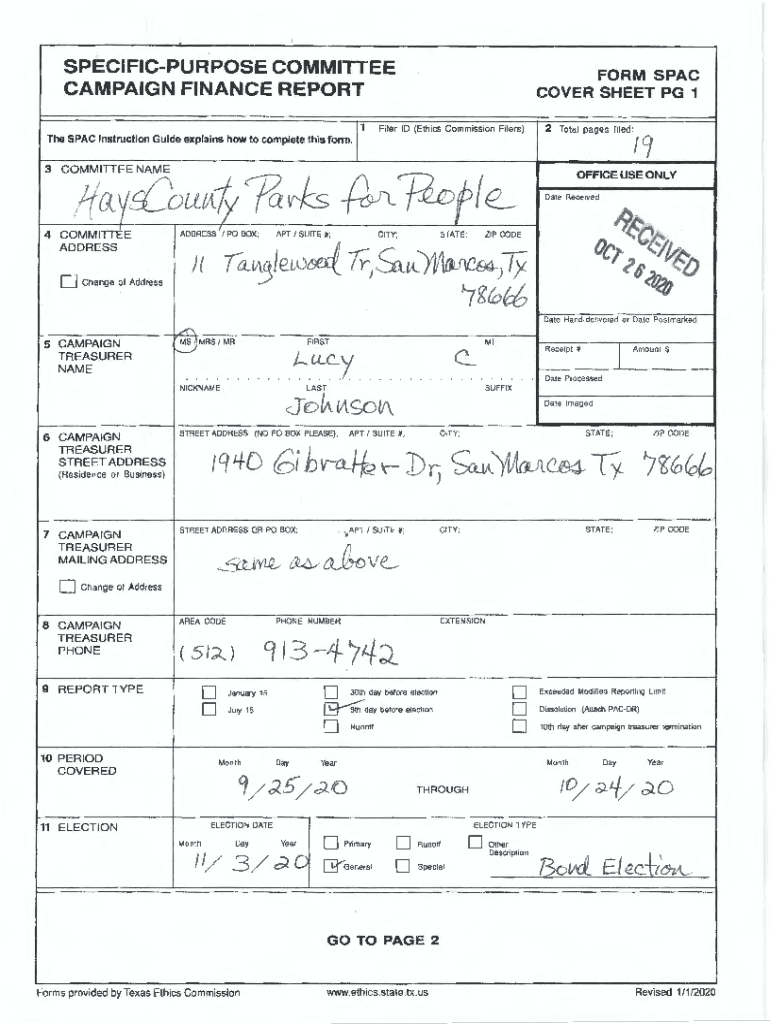 SPECIFIC-PURPOSE COMMITTEE
CAMPAIGN FINANCE REPORT
FORM SPAC
COVER SHEET PG 1
The SPAC Instruction Guide explains how to complete this form.
1 Filer ID (Ethics Commission Filers)
2 Total pages filed:
19
3 COMMITTEE NAME
Hays County Parks for People
OFFICE USE ONLY
Date Received
RECEIVED
OCT 26 2020
4 COMMITTEE
ADDRESS
Change of Address
ADDRESS / PO BOX; APT / SUITE #; CITY; STATE; ZIP CODE
11 Tanglewood Tr, San Marcos, Tx
78666
Date Hand-delivered or Date Postmarked
5 CAMPAIGN
TREASURER
NAME
MS / MRS / MR FIRST MI
Lucy C
NICKNAME LAST SUFFIX
Johnson
Receipt # Amount $
Date Processed
Date Imaged
6 CAMPAIGN
TREASURER
STREET ADDRESS
(Residence or Business)
STREET ADDRESS (NO PO BOX PLEASE); APT / SUITE #; CITY; STATE; ZIP CODE
1940 Gibralter Dr, San Marcos Tx 78666
7 CAMPAIGN
TREASURER
MAILING ADDRESS
Change of Address
STREET ADDRESS OR PO BOX; APT / SUITE #; CITY; STATE; ZIP CODE
same as above
8 CAMPAIGN
TREASURER
PHONE
AREA CODE PHONE NUMBER EXTENSION
(512) 913-4742
9 REPORT TYPE
January 15 30th day before election Exceeded Modified Reporting Limit
July 15 8th day before election Dissolution (Attach PAC-DR)
Runoff 10th day after campaign treasurer termination
10 PERIOD
COVERED
Month Day Year Month Day Year
9/25/20 THROUGH 10/24/20
11 ELECTION
ELECTION DATE
Month Day Year
11/3/20
ELECTION TYPE
Primary Runoff Other
Description
General Special
Bond Election
GO TO PAGE 2
Forms provided by Texas Ethics Commission www.ethics.state.tx.us Revised 1/1/2020